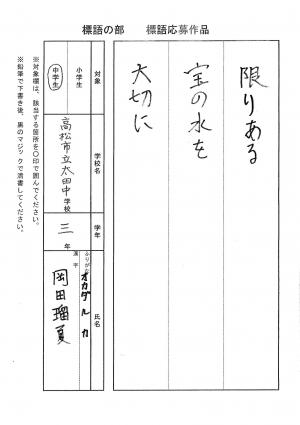 標語の部　標語応募作品
限りある
宝の水を
大切に
対象
小学生
中学生
学校名
高松市立太田中学校
学年
三年
氏名
ふりがな
オカダ ルカ
漢字
岡田瑠夏
※対象欄は、該当する箇所を○印で囲んでください。
※鉛筆で下書き後、黒のマジックで清書してください。